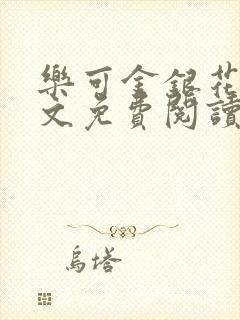 樂可金銀花
文免費閱讀
烏塔